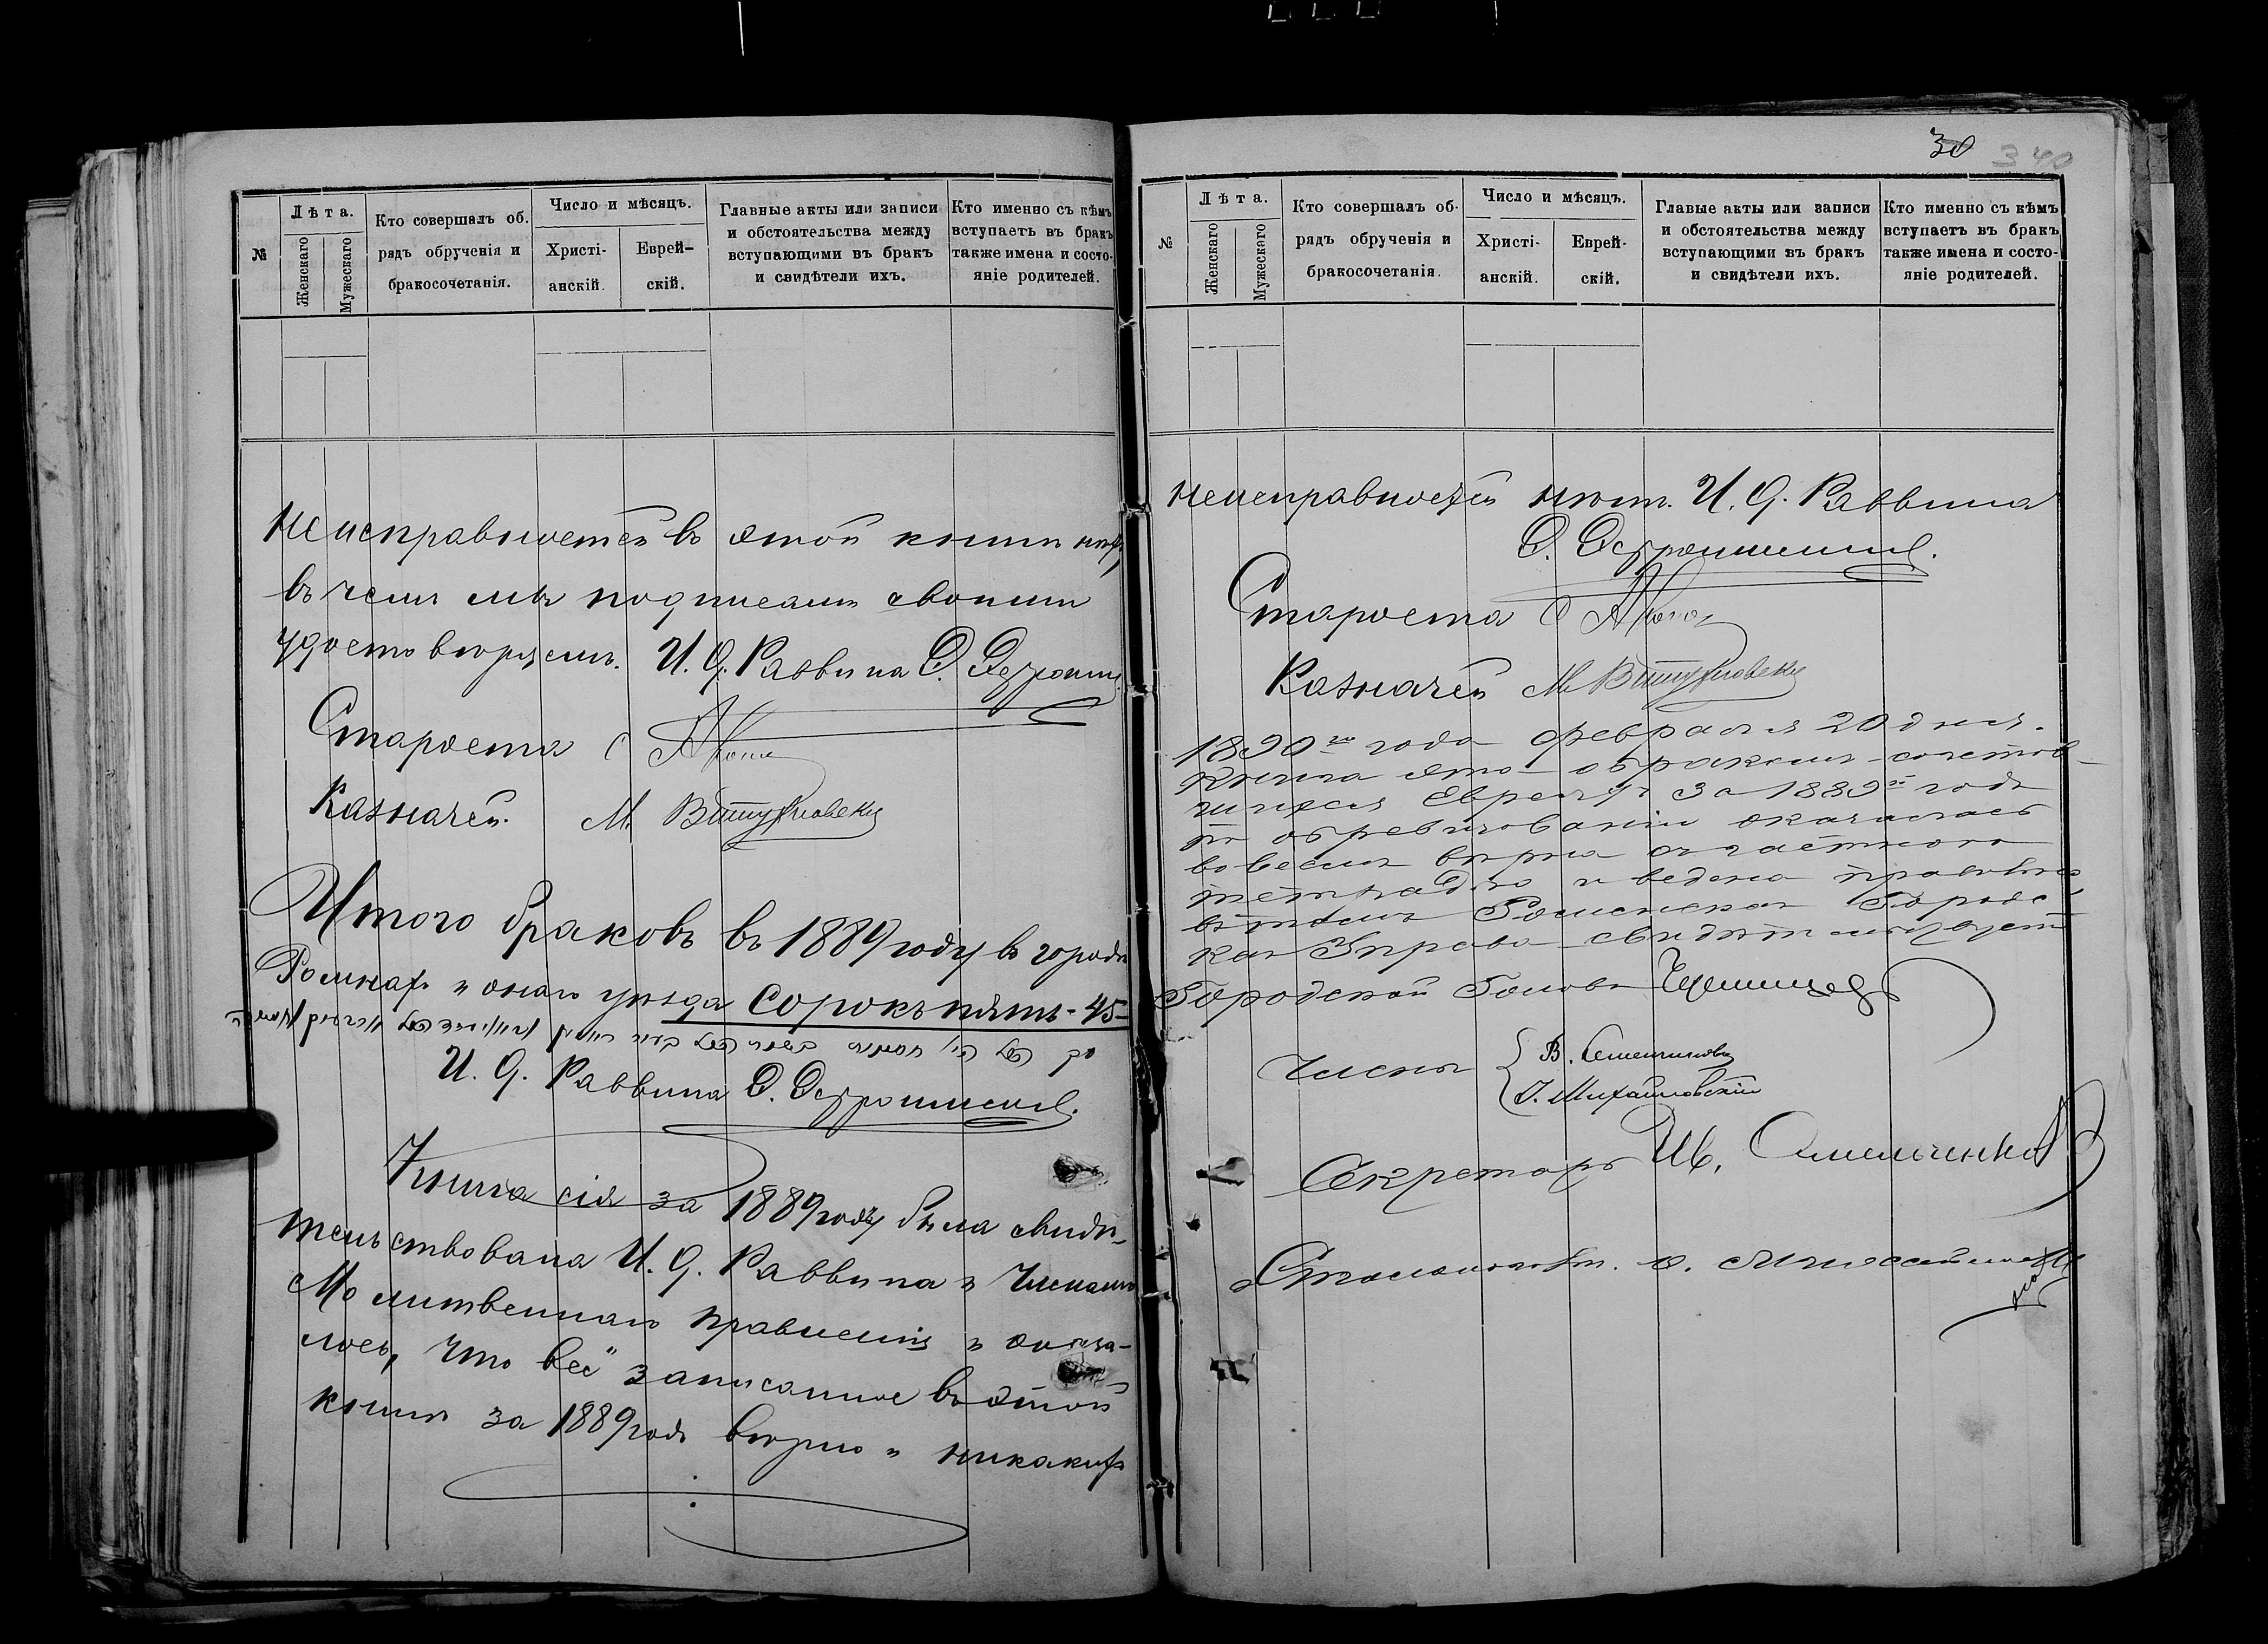 №
Лѣта.
Женскаго
Мужескаго
Кто совершалъ об.
рядъ обрученія и
бракосочетанія.
Число и мѣсяцъ.
Христі-
анскій.
Еврей-
скій.
Главные акты или записи
и обстоятельства между
вступающими въ бракъ
и свидѣтели ихъ.
Кто именно съ кѣмъ
вступаетъ въ бракъ
также имена и состо-
яніе родителей.
неисправностей въ этой книгѣ нѣтъ,
въ чемъ мы подписами своими
удостовѣряемъ. И. Д. Раввина О.
Староста
Казначей. М.
Итого браковъ въ 1889 году въ городѣ
Ромнахъ и онаго уѣзда Сорокъ пять - 45
И. Д. Раввина О.
Книга сія за 1889 годъ была свидѣ-
тельствована И. Д. Раввина и Членами
Молитвеннаго правленія и оказа-
лось, что всё записанное въ этой
книгѣ за 1889 годъ вѣрно и никакихъ
30
340
№
Лѣта.
Женскаго
Мужескаго
Кто совершалъ об-
рядъ обрученія и
бракосочетанія.
Число и мѣсяцъ.
Христі-
анскій.
Еврей-
скій.
Главые акты или записи
и обстоятельства между
вступающими въ бракъ
и свидѣтели ихъ.
Кто именно съ кѣмъ
вступаетъ въ бракъ
также имена и состо-
яніе родителей.
неисправностей нѣтъ. И. Д. Раввина
О.
Староста
Казначей М.
1890го года февраля 20 дня.
Книга эта о бракомъ сочетав-
шихся Евреяхъ за 1889й годъ
по обревизованіи оказалась
во всемъ вѣрна съ частною
тетрадью и ведена правильно,
въ томъ Роменская Городс
кая Управа свидѣтельствуетъ
Городской Голова
Члены
В. Семенниковъ
І. Михайловскій
Секретарь Ив. Омельченко